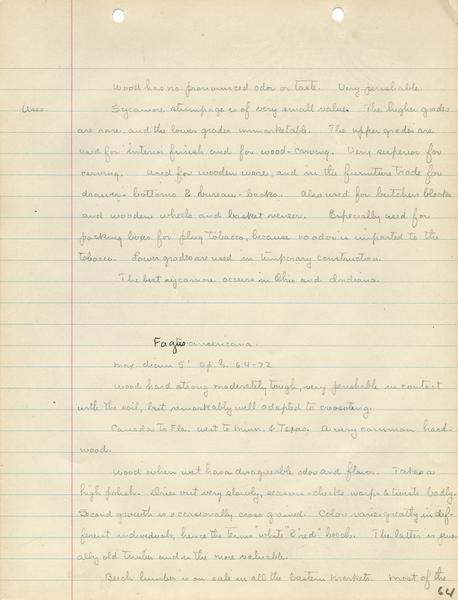 Wood has no pronounced odor or taste. Very perishable.
Uses Sycamore stumpage is of very small value. The higher grades
are rare, and the lower grades unmarketable. The upper grades are
used for interior finish and for wood-carving. Very superior for
carving. Used for wooden ware, and in the furniture trade for
drawer-bottoms & bureau-backs. Also used for butchers blocks
and wooden wheels and basket veneer. Especially used for
packing boxes for plug tobacco, because no odor is imparted to the
tobacco. Lower grades are used in temporary construction.
The best sycamore occurs in Ohio and Indiana.
Fagus americana.
max. diam 5' Sp. G. 64-72
Wood hard strong moderately tough, very perishable in contact
with the soil, but remarkably well adapted to creosoting.
Canada to Fla. west to Minn. & Texas. A very common hard-
wood.
Wood when wet has a disagreeable odor and flavor. Takes a
high polish. Dries out very slowly, season-checks warps & twists badly.
Second growth is occasionally cross grained. Color varies greatly in dif-
ferent individuals, hence the terms "white" & "red" beech. The latter is gener-
ally old timber and is the more valuable.
Beech lumber is on sale in all the Eastern Markets. Most of the
64